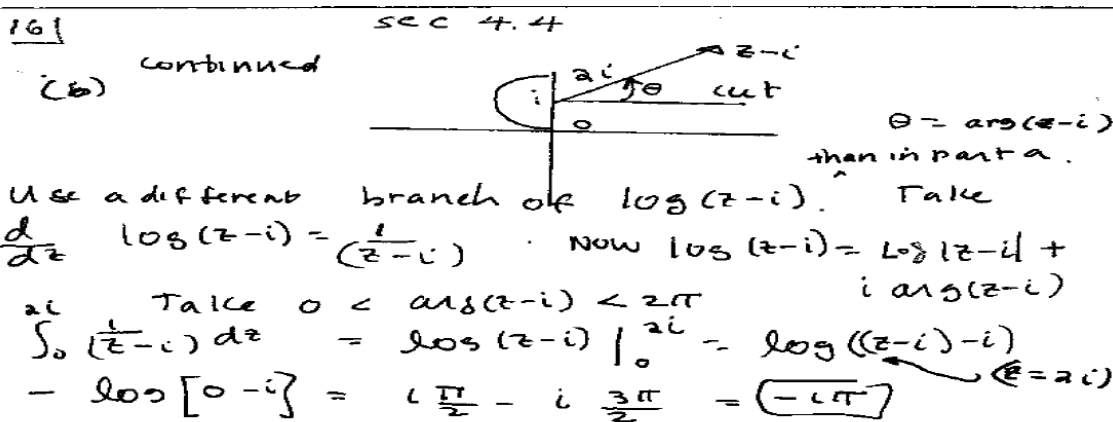 16] sec 4.4
continued
(b)
z-i
2i
i θ cut
0
θ = arg(z-i)
than in part a.
Use a different branch of log(z-i). Take
d/dz log(z-i) = 1/(z-i) . Now log(z-i) = Log|z-i| +
i arg(z-i)
Take 0 < arg(z-i) < 2π
∫₀²ⁱ 1/(z-i) dz = log(z-i) |₀²ⁱ = log((z-i)-i)
(z=2i)
- log[0-i] = i π/2 - i 3π/2 = -iπ